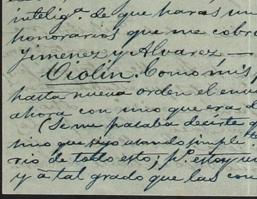 intelig.ª de que haras un
honorarios que me cobr
Jimenez y Alvarez —
Violin. Como mis p
hasta nueva orden el envi
ahora con uno que era d
(Se me pasaba decirte q
sino que sigo usando simple
rio de todo esto; p.º estoy
y a tal grado que las con